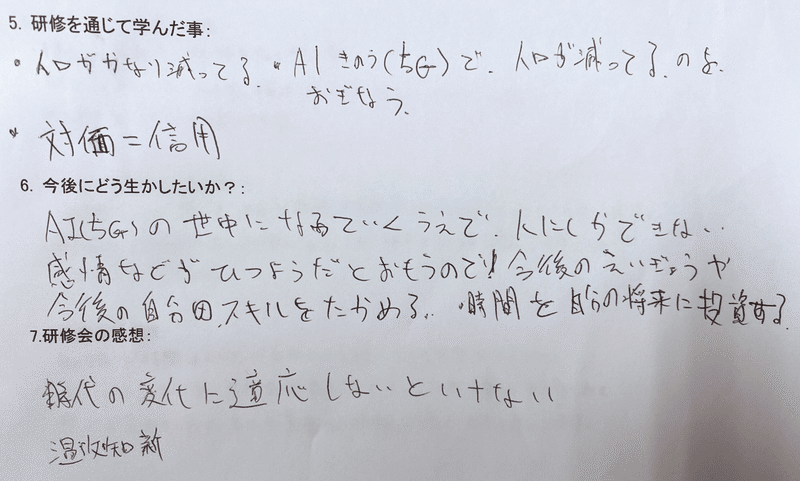 5. 研修を通じて学んだ事:
・人口がかなり減ってる。・AIきのう(5G)で、人口が減ってる。のを、
おぎなう。
・対価=信用
6. 今後にどう生かしたいか?:
AI(5G)の世中になっていくうえで、人にしかできない
感情などがひつようだとおもうので! 今後のえいぎょうや
今後の自分の、スキルをたかめる、・時間を自分の将来に投資する。
7.研修会の感想:
時代の変代に適応しないといけない
温故知新